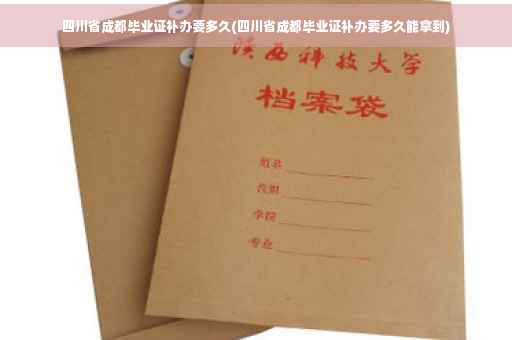 四川省成都毕业证补办要多久(四川省成都毕业证补办要多久能拿到)
陕西科技大学
档案袋
姓名
学院
专业